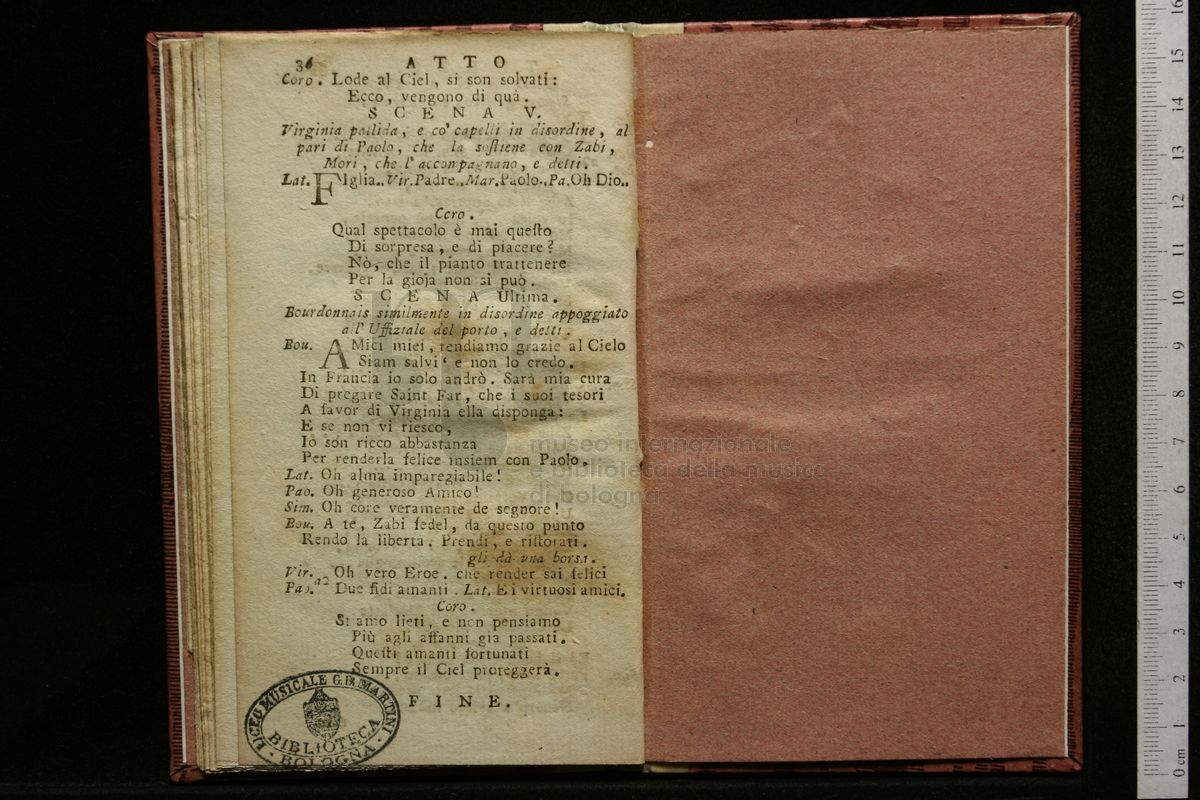 36 ATTO
Coro. Lode al Ciel, si son solvati:
Ecco, vengono di quà.
SCENA V.
Virginia pallida, e co' capelli in disordine, al
pari di Paolo, che la soſtiene con Zabi,
Mori, che l'accompagnano, e detti.
Lat. FIglia.. Vir. Padre.. Mar. Paolo.. Pa. Oh Dio..
Coro.
Qual spettacolo è mai queſto
Di sorpresa, e di piacere?
Nò, che il pianto trattenere
Per la gioja non si può.
SCENA Ultima.
Bourdonnais similmente in disordine appoggiato
all' Uffiziale del porto, e detti.
Bou. AMici miei, rendiamo grazie al Cielo
Siam salvi' e non lo credo.
In Francia io solo andrò. Sarà mia cura
Di pregare Saint Far, che i suoi tesori
A favor di Virginia ella disponga:
E se non vi riesco,
Io son ricco abbastanza
Per renderla felice insiem con Paolo.
Lat. Oh alma impareggiabile!
Pao. Oh generoso Amico!
Sim. Oh core veramente de segnore!
Bou. A te, Zabi fedel, da questo punto
Rendo la liberta. Prendi, e riſtorati.
gli dà una borsa.
Vir. Oh vero Eroe. che render sai felici
Pao. a2 Due fidi amanti. Lat. E i virtuosi amici.
Coro.
Stiamo lieti, e non pensiamo
Più agli affanni gia passati.
Queſti amanti fortunati
Sempre il Ciel proteggerà.
FINE.
LICEO MUSICALE G.B. MARTINI
BIBLIOTECA
BOLOGNA
museo internazionale
e biblioteca della musica
di bologna
0 cm 1 2 3 4 5 6 7 8 9 10 11 12 13 14 15 16